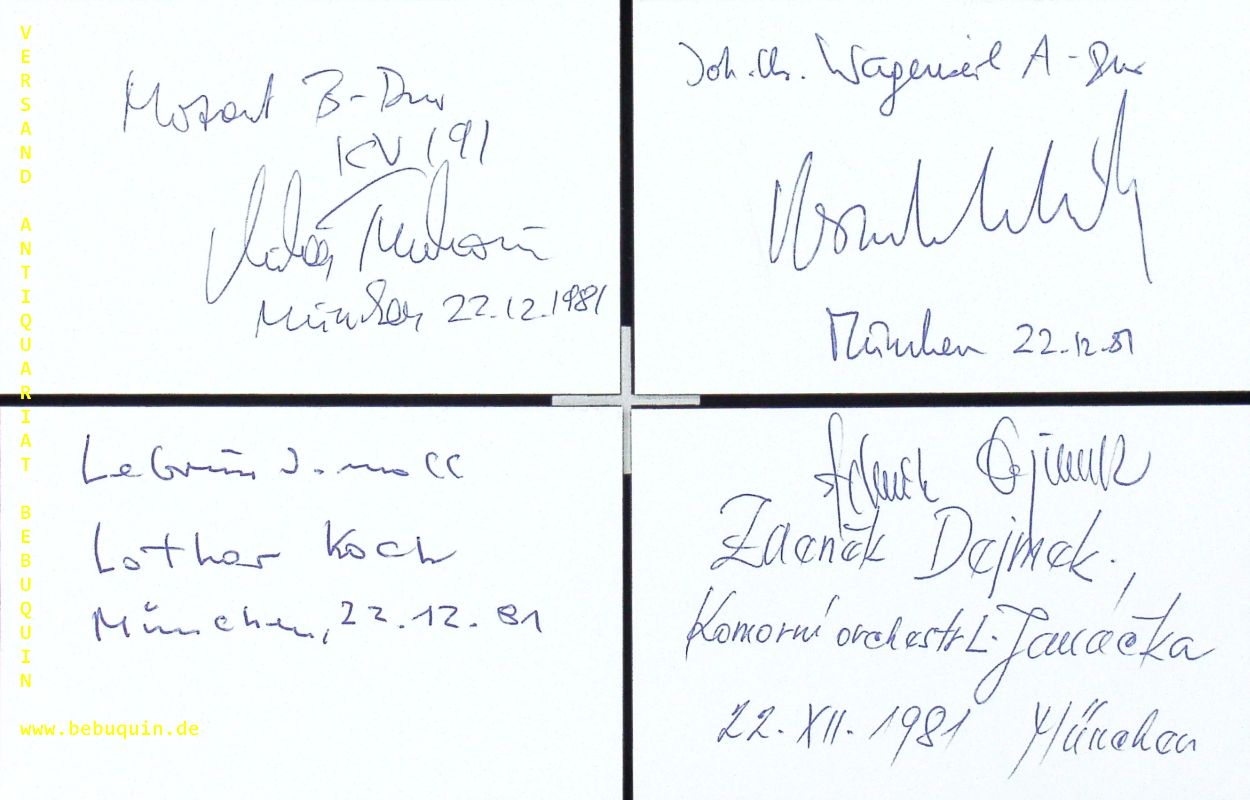 VERSAND ANTIQUARIAT BEBUQUIN
www.bebuquin.de
Mozart B-Dur
KV 191
München 22.12.1981
Joh. Ch. Wagenseil A-Dur
München 22.12.81
LeBrun d-moll
Lothar Koch
München, 22.12.81
Zdeněk Dejmek.,
Komorní orchestr L. Janáčka
22. XII. 1981 München